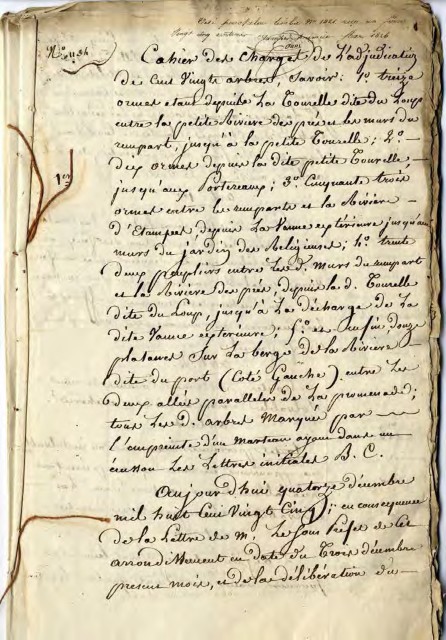 N.° 1154
Cahier des charges de l'adjudication
de Cent Vingt arbres, Savoir: 1.° treize
ormes étant depuis La Tourelle dite du Loup
entre la petite Rivière des prés et les murs du
rempart, jusqu'à la petite Tourelle; 2.°
dix ormes depuis la dite petite Tourelle,
jusqu'aux Portereaux; 3.° Cinquante trois
ormes entre le remparts et la Rivière
d'Etampes depuis La Vanne extérieure jusqu'au
murs du jardin des Religieuses; 4.° trente
deux peupliers entre les d. murs du rempart
et la Rivière des près depuis la d. Tourelle
dite du Loup, jusqu'à La décharge de La
dite Vanne extérieure; 5.° et enfin douze
platanes sur La berge de la Rivière
dite du port (Coté Gauche) entre Les
deux allées parallèles de La promenade;
tous Les d. arbres Marqués par
l'empreinte d'un Marteau ayant dans un
écusson Les Lettres initiales B. C.
1.er
Aujourd'hui quatorze décembre
mil huit Cent Vingt Cinq; en conséquence
de la Lettre de M. Le Sous Préfet de Cet
arrondissement en date du Trois décembre
présent mois, et de la délibération du